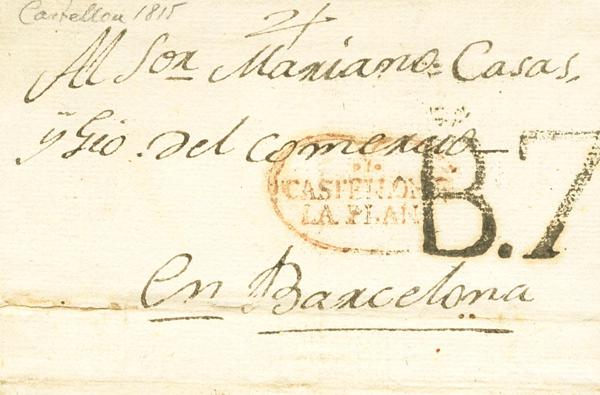 Castellon 1815
Al Sor. Mariano Casas,
del comercio
CASTELLON D
LA PLAN
B.7
en Barcelona